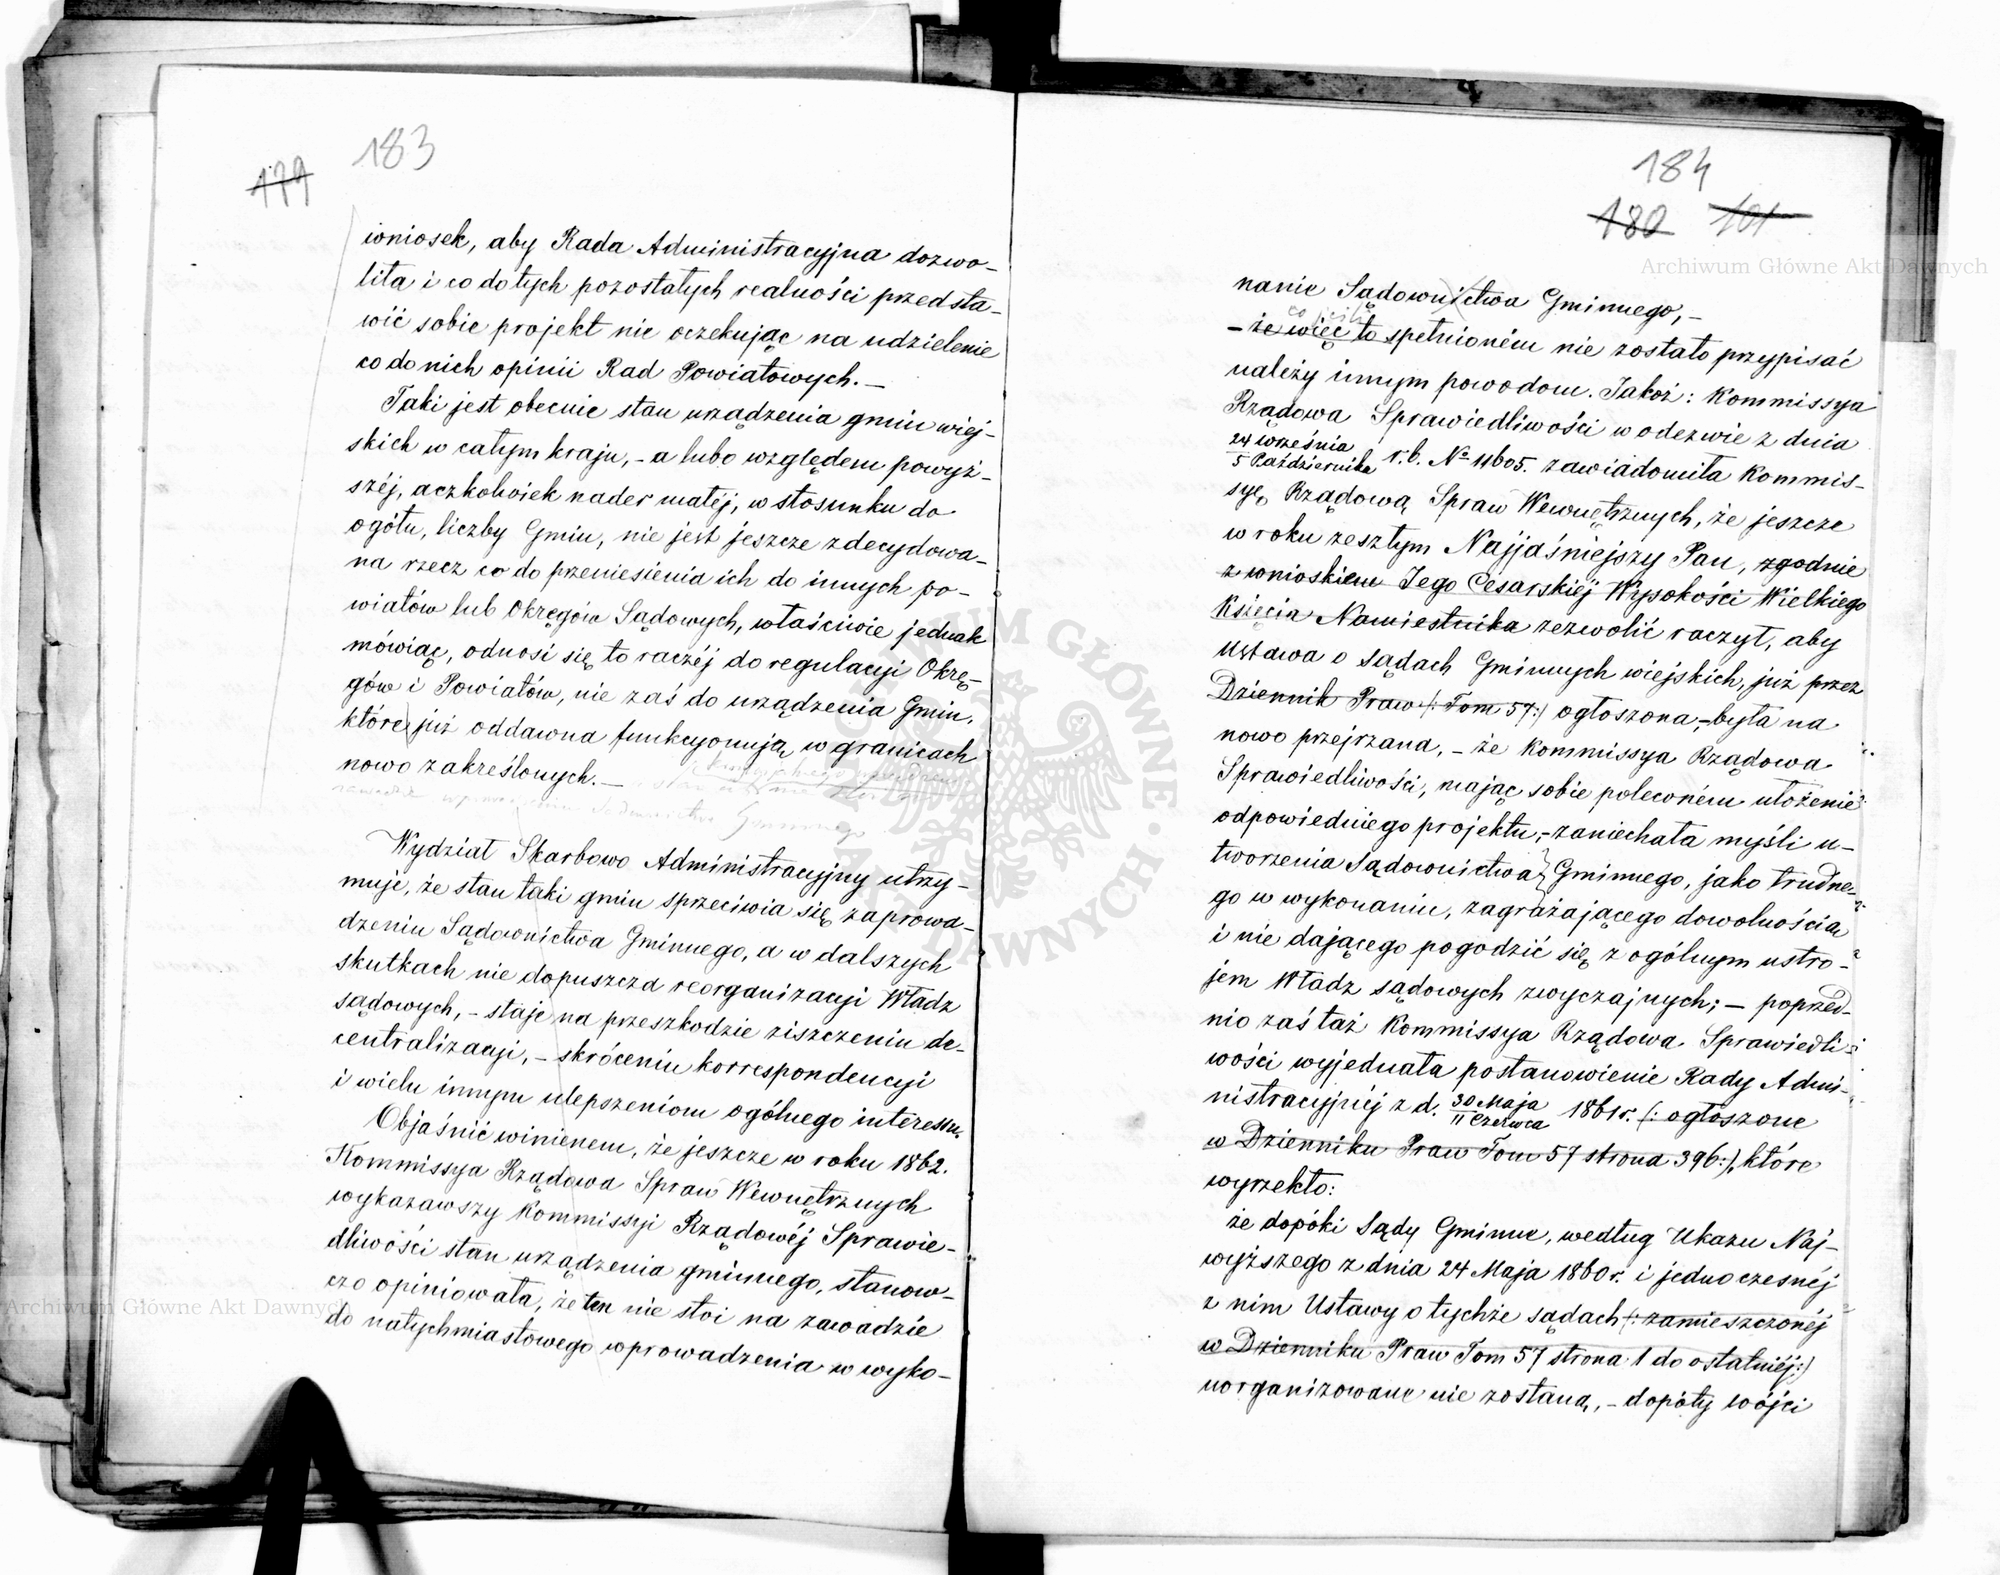 183
179
wniosek, aby Rada Administracyjna dozwo-
liła i co do tych pozostałych realności przedsta-
wić sobie projekt nie oczekując na udzielenie
co do nich opinii Rad Powiatowych. —
Taki jest obecnie stan urządzenia gmin wiej-
skich w całym kraju, - a lubo względem powyż-
széj, aczkolwiek nader małéj, w stosunku do
ogółu, liczby Gmin, nie jest jeszcze zdecydowa-
na rzecz co do przeniesienia ich do innych po-
wiatów lub Okręgów Sądowych, właściwie jednak
mówiąc, odnosi się to raczéj do regulacyi Okrę-
gów i Powiatów, nie zaś do urządzenia Gmin,
które już oddawna funkcyonują w granicach
nowo zakreślonych. —
Sądownictwa Gminnego
Wydział Skarbowo Administracyjny utrzy-
muje, że stan taki gmin sprzeciwia się zaprowa-
dzeniu Sądownictwa Gminnego, a w dalszych
skutkach nie dopuszcza reorganizacyi Władz
sądowych, - staje na przeszkodzie ziszczeniu de-
centralizacyi, - skróceniu korrespondencyi
i wielu innym ulepszeniom ogólnego interesu.
Objaśnić winienem, że jeszcze w roku 1862.
Kommissya Rządowa Spraw Wewnętrznych
wykazawszy Kommissyi Rządowéj Sprawie-
dliwości stan urządzenia gminnego, stanow-
czo opiniowała, że ten nie stoi na zawadzie
do natychmiastowego wprowadzenia w wyko-
184
180 101
nanie Sądownictwa Gminnego, -
- że więc to spełnioném nie zostało przypisać
należy innym powodom. Jakoż: Kommissya
Rządowa Sprawiedliwości w odezwie z dnia
24 Września
5 Października r. b. No 11605. zawiadomiła Kommis-
syę Rządową Spraw Wewnętrznych, że jeszcze
w roku zeszłym Najjaśniejszy Pan, zgodnie
z wnioskiem Jego Cesarskiéj Wysokości Wielkiego
Księcia Namiestnika zezwolić raczył, aby
Ustawa o sądach Gminnych wiejskich, już przez
Dziennik Praw (: Tom 57:) ogłoszona, - była na
nowo przejrzana, - że Kommissya Rządowa
Sprawiedliwości, mając sobie poleconém ułożenie
odpowiedniego projektu, - zaniechała myśli u-
tworzenia Sądownictwa Gminnego, jako trudne-
go w wykonaniu, zagrażającego dowolnością
i nie dającego pogodzić się z ogólnym ustro-
jem Władz sądowych zwyczajnych; — poprzed-
nio zaś taż Kommissya Rządowa Sprawiedli-
wości wyjednała postanowienie Rady Admi-
nistracyjnéj z d. 30 Maja
11 Czerwca 1861 r. (: ogłoszone
w Dzienniku Praw Tom 57 strona 396:), które
wyrzekło:
że dopóki Sądy Gminne, według Ukazu Naj-
wyższego z dnia 24 Maja 1860 r. i jednoczesnéj
z nim Ustawy o tychże sądach (: zamieszczonéj
w Dzienniku Praw Tom 57 strona 1 do ostatniéj:)
uorganizowane nie zostaną, - dopóty wójci
Archiwum Główne Akt Dawnych
Archiwum Główne Akt Dawnych
ARCHIWUM GŁÓWNE AKT DAWNYCH